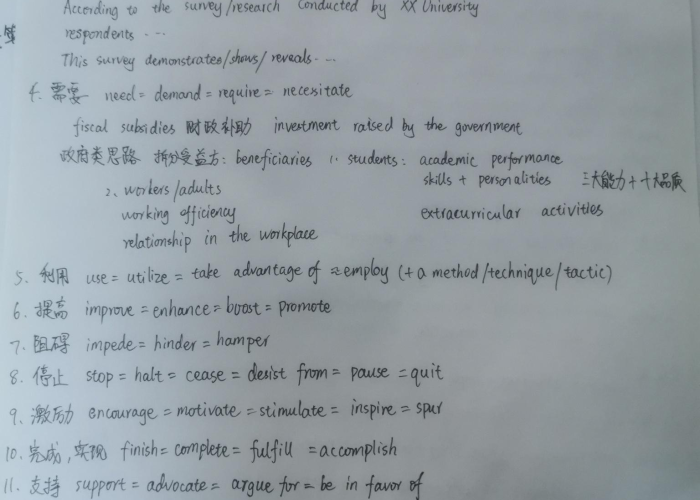 According to the survey/research conducted by XX University
respondents ...
This survey demonstrates/shows/reveals ...
4. 需要 need = demand = require = necessitate
fiscal subsidies 财政补助 investment raised by the government
政府类思路 拆分受益方: beneficiaries 1. students: academic performance
skills + personalities 三大能力+十大品质
2. workers/adults
working efficiency extracurricular activities
relationship in the workplace
5. 利用 use = utilize = take advantage of ≈ employ (+ a method/technique/tactic)
6. 提高 improve = enhance = boost = promote
7. 阻碍 impede = hinder = hamper
8. 停止 stop = halt = cease = desist from = pause = quit
9. 激励 encourage = motivate = stimulate = inspire = spur
10. 完成, 实现 finish = complete = fulfill = accomplish
11. 支持 support = advocate = argue for = be in favor of